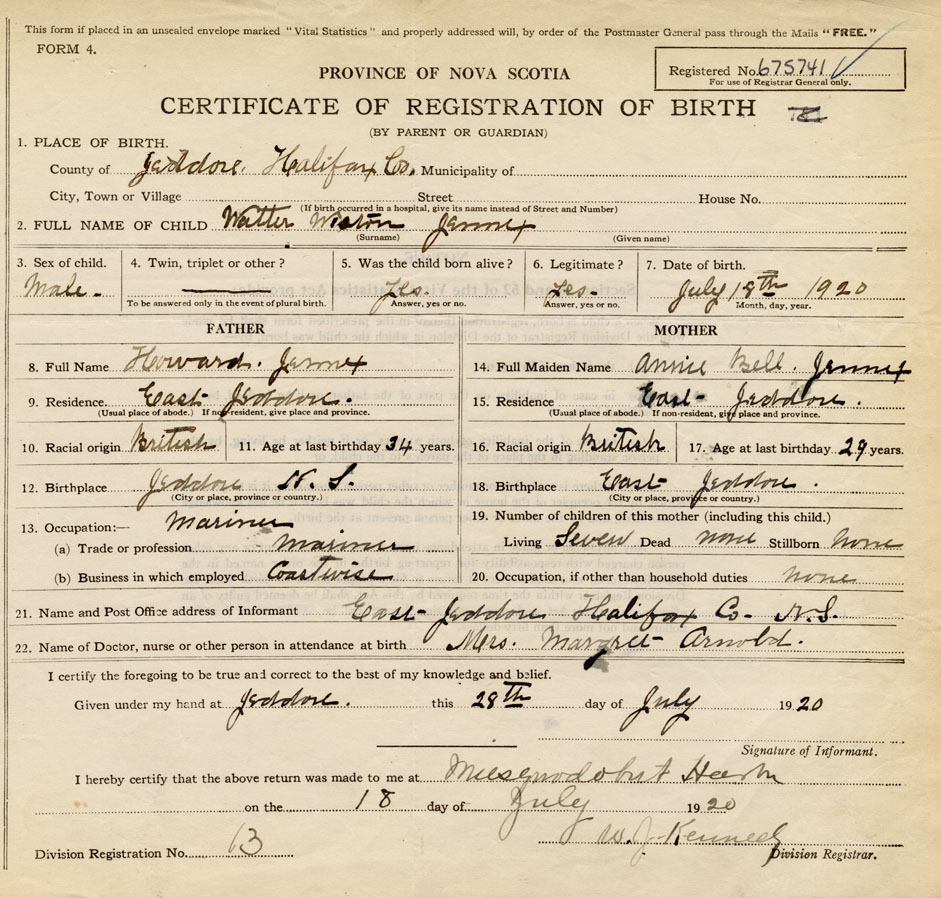 This form if placed in an unsealed envelope marked "Vital Statistics" and properly addressed will, by order of the Postmaster General pass through the Mails "FREE."
FORM 4.
Registered No. 675741
For use of Registrar General only.
PROVINCE OF NOVA SCOTIA
CERTIFICATE OF REGISTRATION OF BIRTH
(BY PARENT OR GUARDIAN)
1. PLACE OF BIRTH.
County of Jeddore. Halifax Co. Municipality of
City, Town or Village Street House No.
(If birth occurred in a hospital, give its name instead of Street and Number)
2. FULL NAME OF CHILD Walter Jennex
(Surname) (Given name)
3. Sex of child. 4. Twin, triplet or other? 5. Was the child born alive? 6. Legitimate? 7. Date of birth.
Male - Yes. Yes. July 18th 1920
To be answered only in the event of plural birth. Answer, yes or no. Answer, yes or no. Month, day, year.
FATHER MOTHER
8. Full Name Howard. Jennex 14. Full Maiden Name Annie Bell. Jennex
9. Residence. East Jeddore. 15. Residence East Jeddore.
(Usual place of abode.) If non-resident, give place and province. (Usual place of abode.) If non-resident, give place and province.
10. Racial origin British 11. Age at last birthday 34 years. 16. Racial origin British 17. Age at last birthday 29 years.
12. Birthplace Jeddore N. S. 18. Birthplace East Jeddore.
(City or place, province or country.) (City or place, province or country.)
13. Occupation:— Mariner 19. Number of children of this mother (including this child.)
(a) Trade or profession mariner Living Seven Dead none Stillborn None
(b) Business in which employed Coastwise 20. Occupation, if other than household duties none
21. Name and Post Office address of Informant East Jeddore Halifax Co- N.S.
22. Name of Doctor, nurse or other person in attendance at birth Mrs. Margret Arnold.
I certify the foregoing to be true and correct to the best of my knowledge and belief.
Given under my hand at Jeddore. this 28th day of July 1920
Signature of Informant.
I hereby certify that the above return was made to me at Musquodoboit
on the 18 day of July 1920
W. J. Kennedy
Division Registration No. 13 Division Registrar.